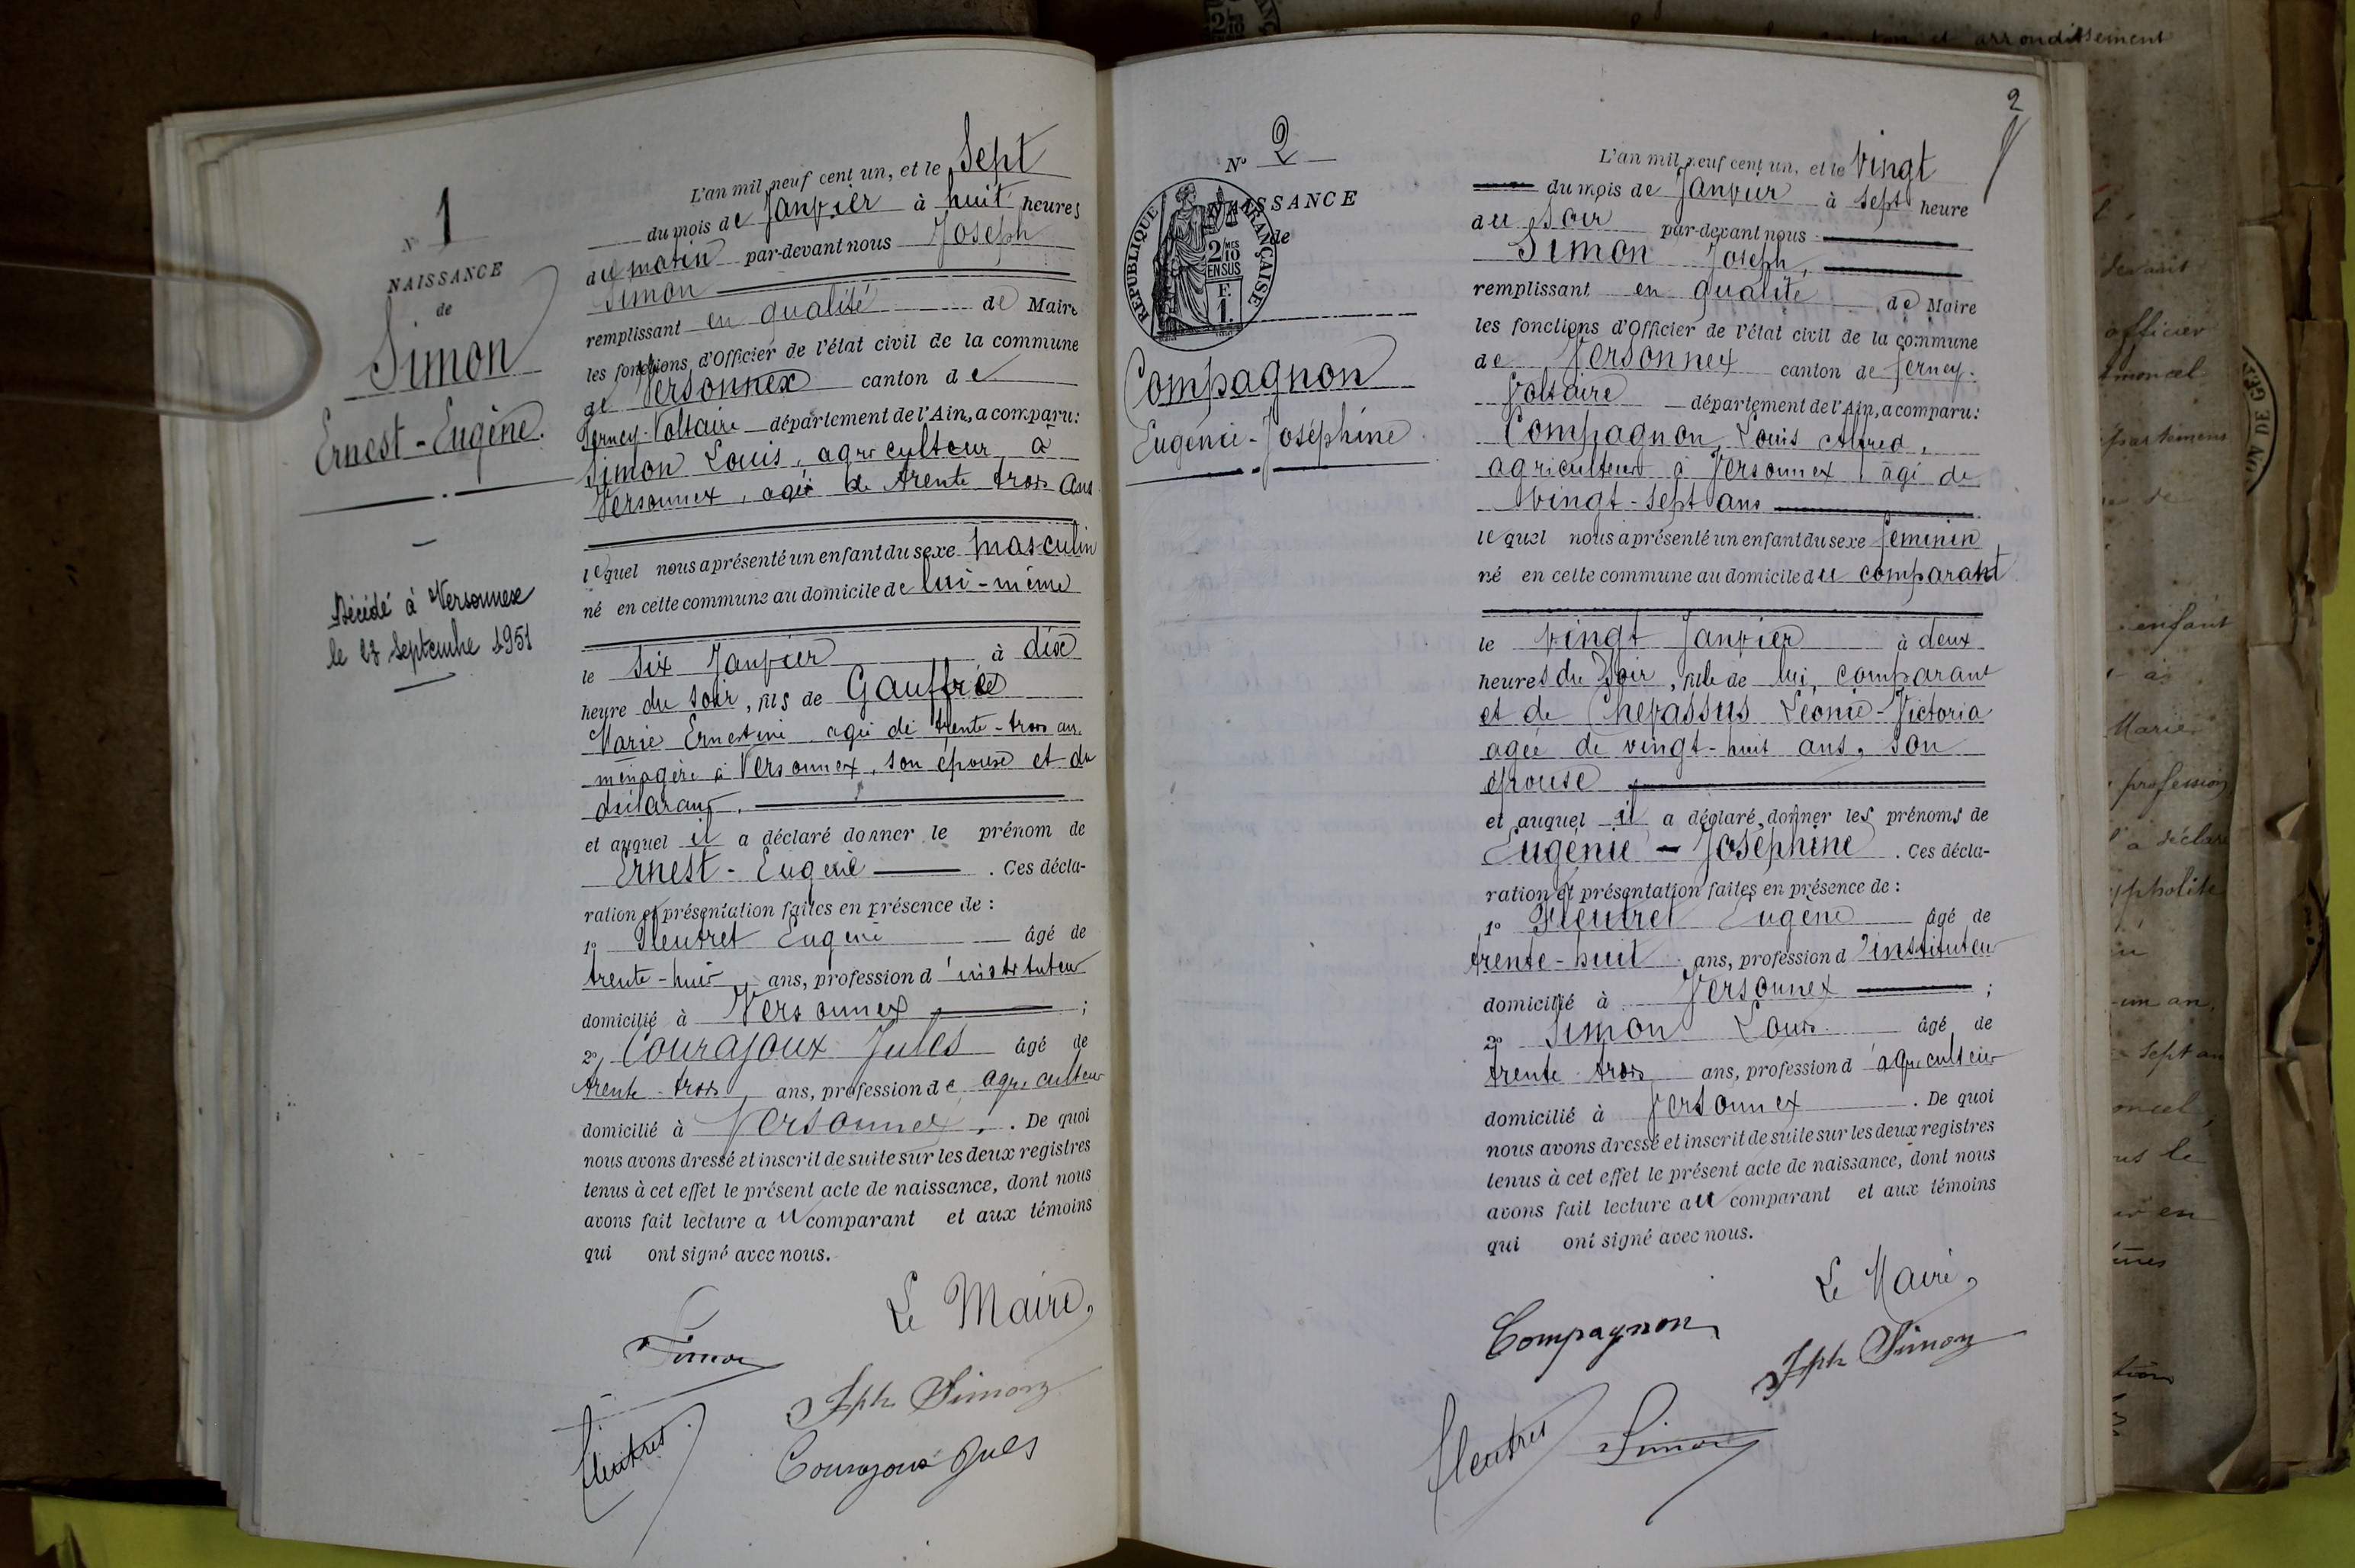 N° 1
NAISSANCE
de
Simon
Ernest-Eugène.
Décédé à Versonnex
le Septembre 1951
L'an mil neuf cent un, et le Sept
du mois de Janvier à huit heures
du matin par-devant nous Joseph
Simon
remplissant en qualité de Maire
les fonctions d'Officier de l'état civil de la commune
de Versonnex canton de
Ferney-Voltaire département de l'Ain, a comparu:
Simon Louis, agriculteur à
Versonnex, agé de trente trois ans
lequel nous a présenté un enfant du sexe masculin
né en cette commune au domicile de lui-même
le six Janvier à dix
heure du soir, fils de
Marie Ernestine agée de trente-trois ans
ménagère à Versonnex, son épouse et du
déclarant.
et auquel il a déclaré donner le prénom de
Ernest-Eugène. Ces décla-
ration et présentation faites en présence de :
1° Fleutret Eugène âgé de
trente-huit ans, profession d'instituteur
domicilié à Versonnex ;
2° Courajoux Jules âgé de
trente-trois ans, profession de agriculteur
domicilié à Versonnex. De quoi
nous avons dressé et inscrit de suite sur les deux registres
tenus à cet effet le présent acte de naissance, dont nous
avons fait lecture au comparant et aux témoins
qui ont signé avec nous.
Le Maire,
Simon
Jph Simon
Fleutret
Courajoux Jules
2
N° 2
NAISSANCE
de
RÉPUBLIQUE FRANÇAISE
2 MES
10
EN SUS
F.
1.
Compagnon
Eugénie-Joséphine
L'an mil neuf cent un, et le vingt
du mois de Janvier à sept heure
du soir par-devant nous
Simon Joseph,
remplissant en qualité de Maire
les fonctions d'Officier de l'état civil de la commune
de Versonnex canton de Ferney-
Voltaire département de l'Ain, a comparu:
Compagnon Louis Alfred,
agriculteur à Versonnex, âgé de
vingt-sept ans
lequel nous a présenté un enfant du sexe féminin
né en cette commune au domicile du comparant
le vingt Janvier à deux
heures du soir, fille de lui, comparant
et de Chevassus Léonie-Victoria
agée de vingt-huit ans, son
épouse
et auquel il a déclaré donner les prénoms de
Eugénie-Joséphine. Ces décla-
ration et présentation faites en présence de :
1° Fleutret Eugène âgé de
trente-huit ans, profession d'instituteur
domicilié à Versonnex ;
2° Simon Louis âgé de
trente-trois ans, profession d'agriculteur
domicilié à Versonnex. De quoi
nous avons dressé et inscrit de suite sur les deux registres
tenus à cet effet le présent acte de naissance, dont nous
avons fait lecture au comparant et aux témoins
qui ont signé avec nous.
Le Maire,
Compagnon
Jph Simon
Fleutret
Simon
arrondissement
officier
enfant
Marie
profession